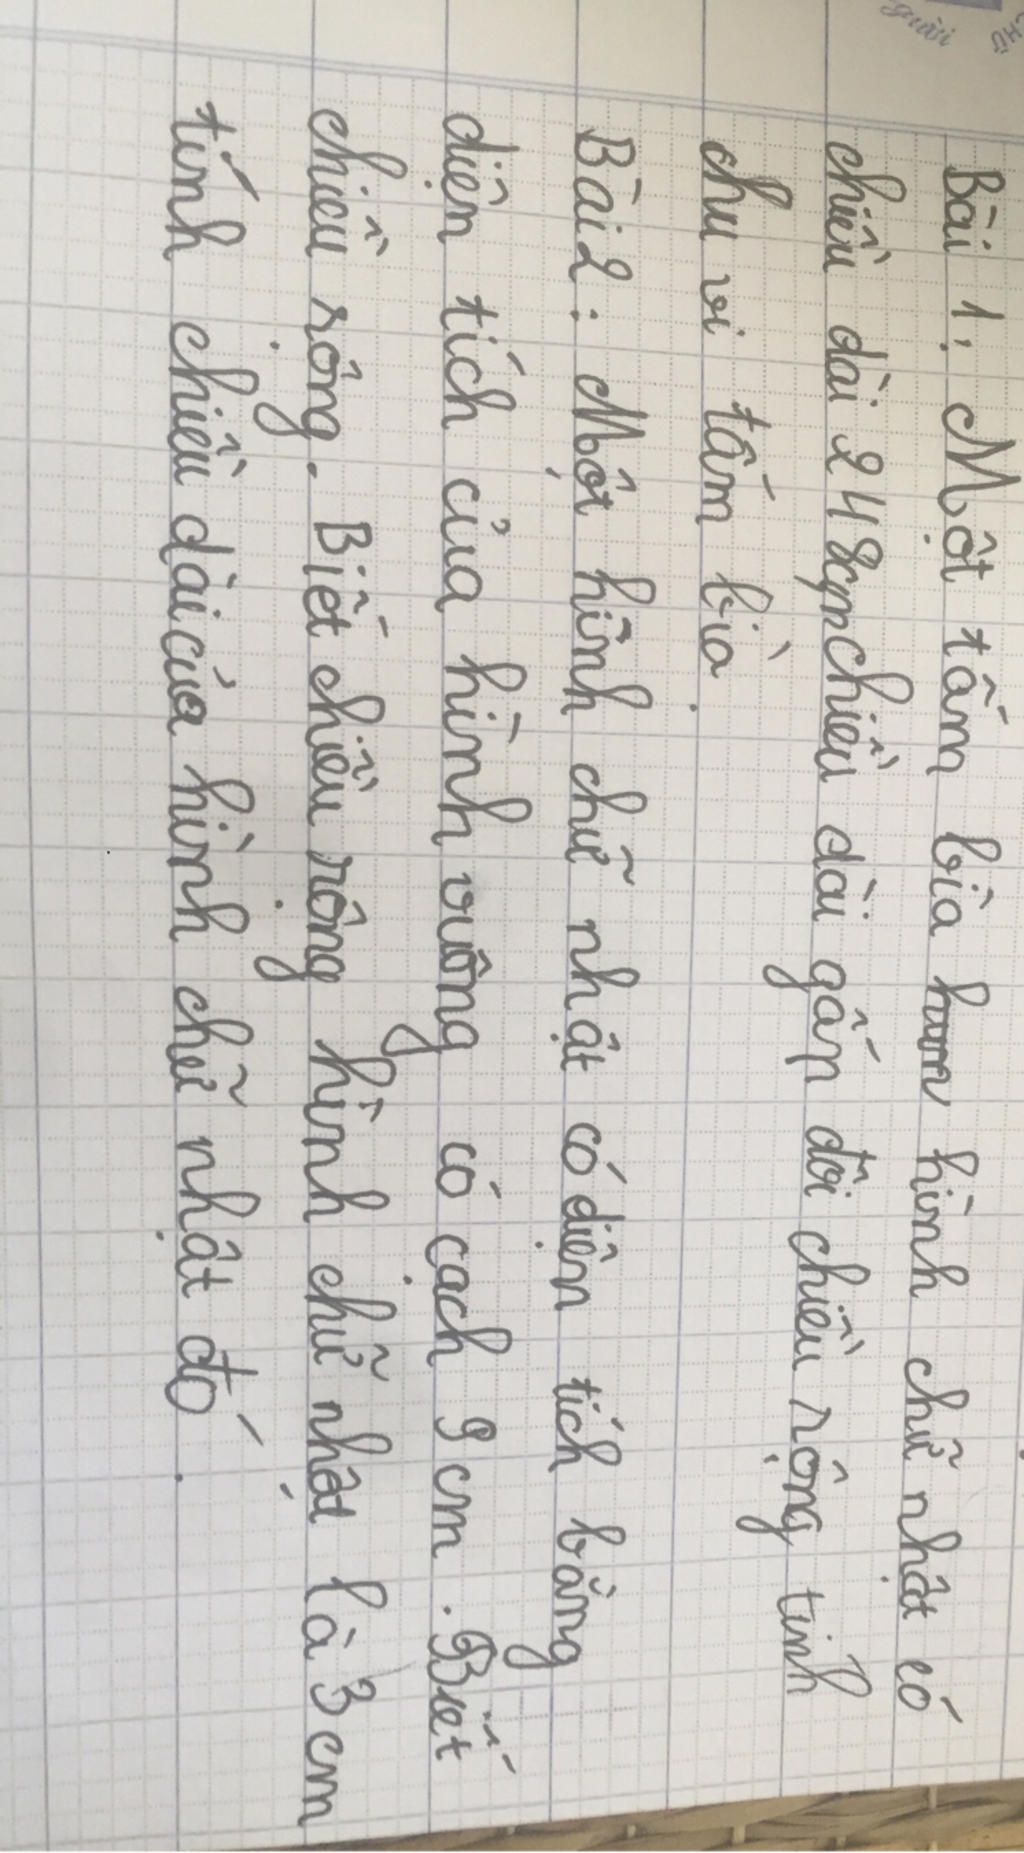 Bài 1: Một tấm bìa hình chữ nhật có
chiều dài 248cm chiều dài gấp đôi chiều rộng tính
chu vi tấm bìa.
Bài 2: Một hình chữ nhật có diện tích bằng
diện tích của hình vuông có cạch 9 cm. Biết
chiều rộng. Biết chiều rộng hình chữ nhật là 3 cm
tính chiều dài của hình chữ nhật đó.